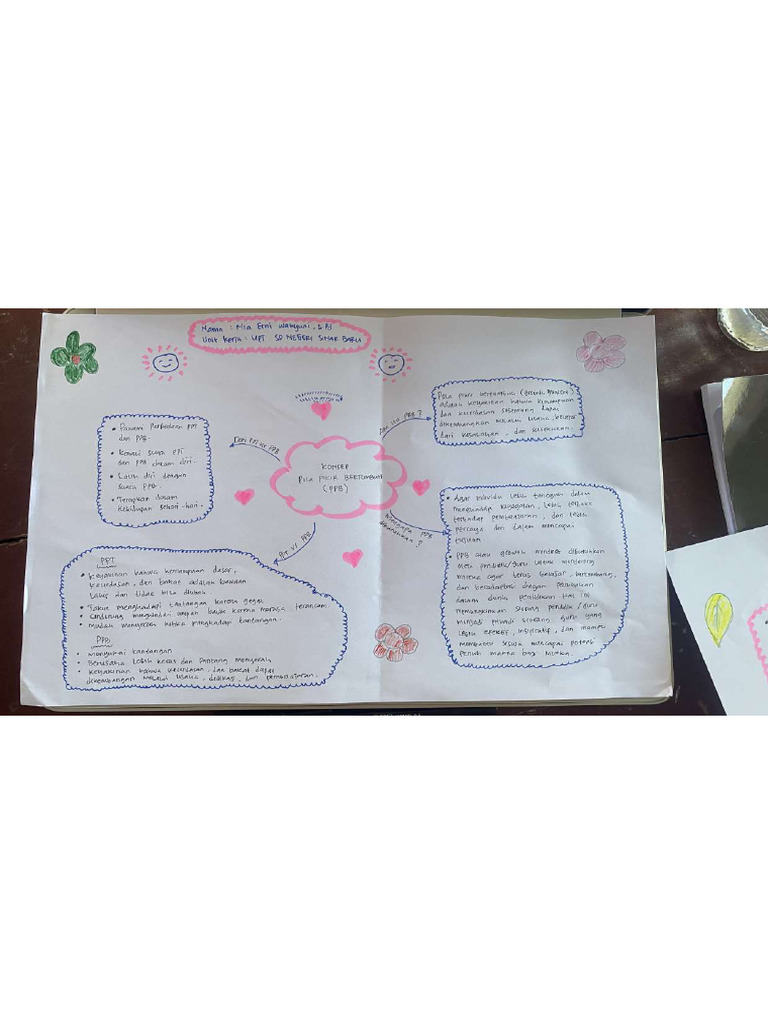 Nama : Mia Erni Wahyuni, S.Pd
Unit Kerja : UPT SD NEGERI SUMBER BARU
KONSEP
POLA PIKIR BERTUMBUH
(PPB)
Apa itu PPB ?
Pola pikir bertumbuh (growth mindset)
adalah keyakinan bahwa kemampuan
dan kecerdasan seseorang dapat
dikembangkan melalui usaha, belajar
dari kesalahan dan
Mengapa PPB
dibutuhkan ?
• Agar individu lebih tangguh dalam
menghadapi kegagalan, lebih terbuka
terhadap pembelajaran, dan lebih
percaya diri dalam mencapai
tujuan
• PPB atau growth mindset dibutuhkan
oleh pendidik/guru untuk mendorong
mereka agar terus belajar, berkembang,
dan beradaptasi dengan perubahan
dalam dunia pendidikan. Hal ini
memungkinkan seorang pendidik/guru
menjadi pribadi seorang guru yang
lebih efektif, inspiratif, dan mampu
membantu siswa mencapai potensi
penuh mereka.
Dari PPT ke PPB
• Pahami Perbedaan PPT
dan PPB.
• Kenali suara PPT
dan PPB dalam diri.
• Latih diri dengan
suara PPB.
• Terapkan dalam
kehidupan sehari-hari.
PPT vs PPB
PPT
• Keyakinan bahwa kemampuan dasar,
kecerdasan, dan bakat adalah bawaan
lahir dan tidak bisa diubah.
• Takut menghadapi tantangan karena gagal
• Cenderung menghindari umpan balik karena merasa terancam.
• Mudah menyerah ketika menghadapi tantangan.
PPB
• Menyukai tantangan
• Berusaha lebih keras dan pantang menyerah
Keyakinan bahwa kecerdasan dan bakat dapat
dikembangkan melalui usaha, dedikasi, dan pembelajaran.